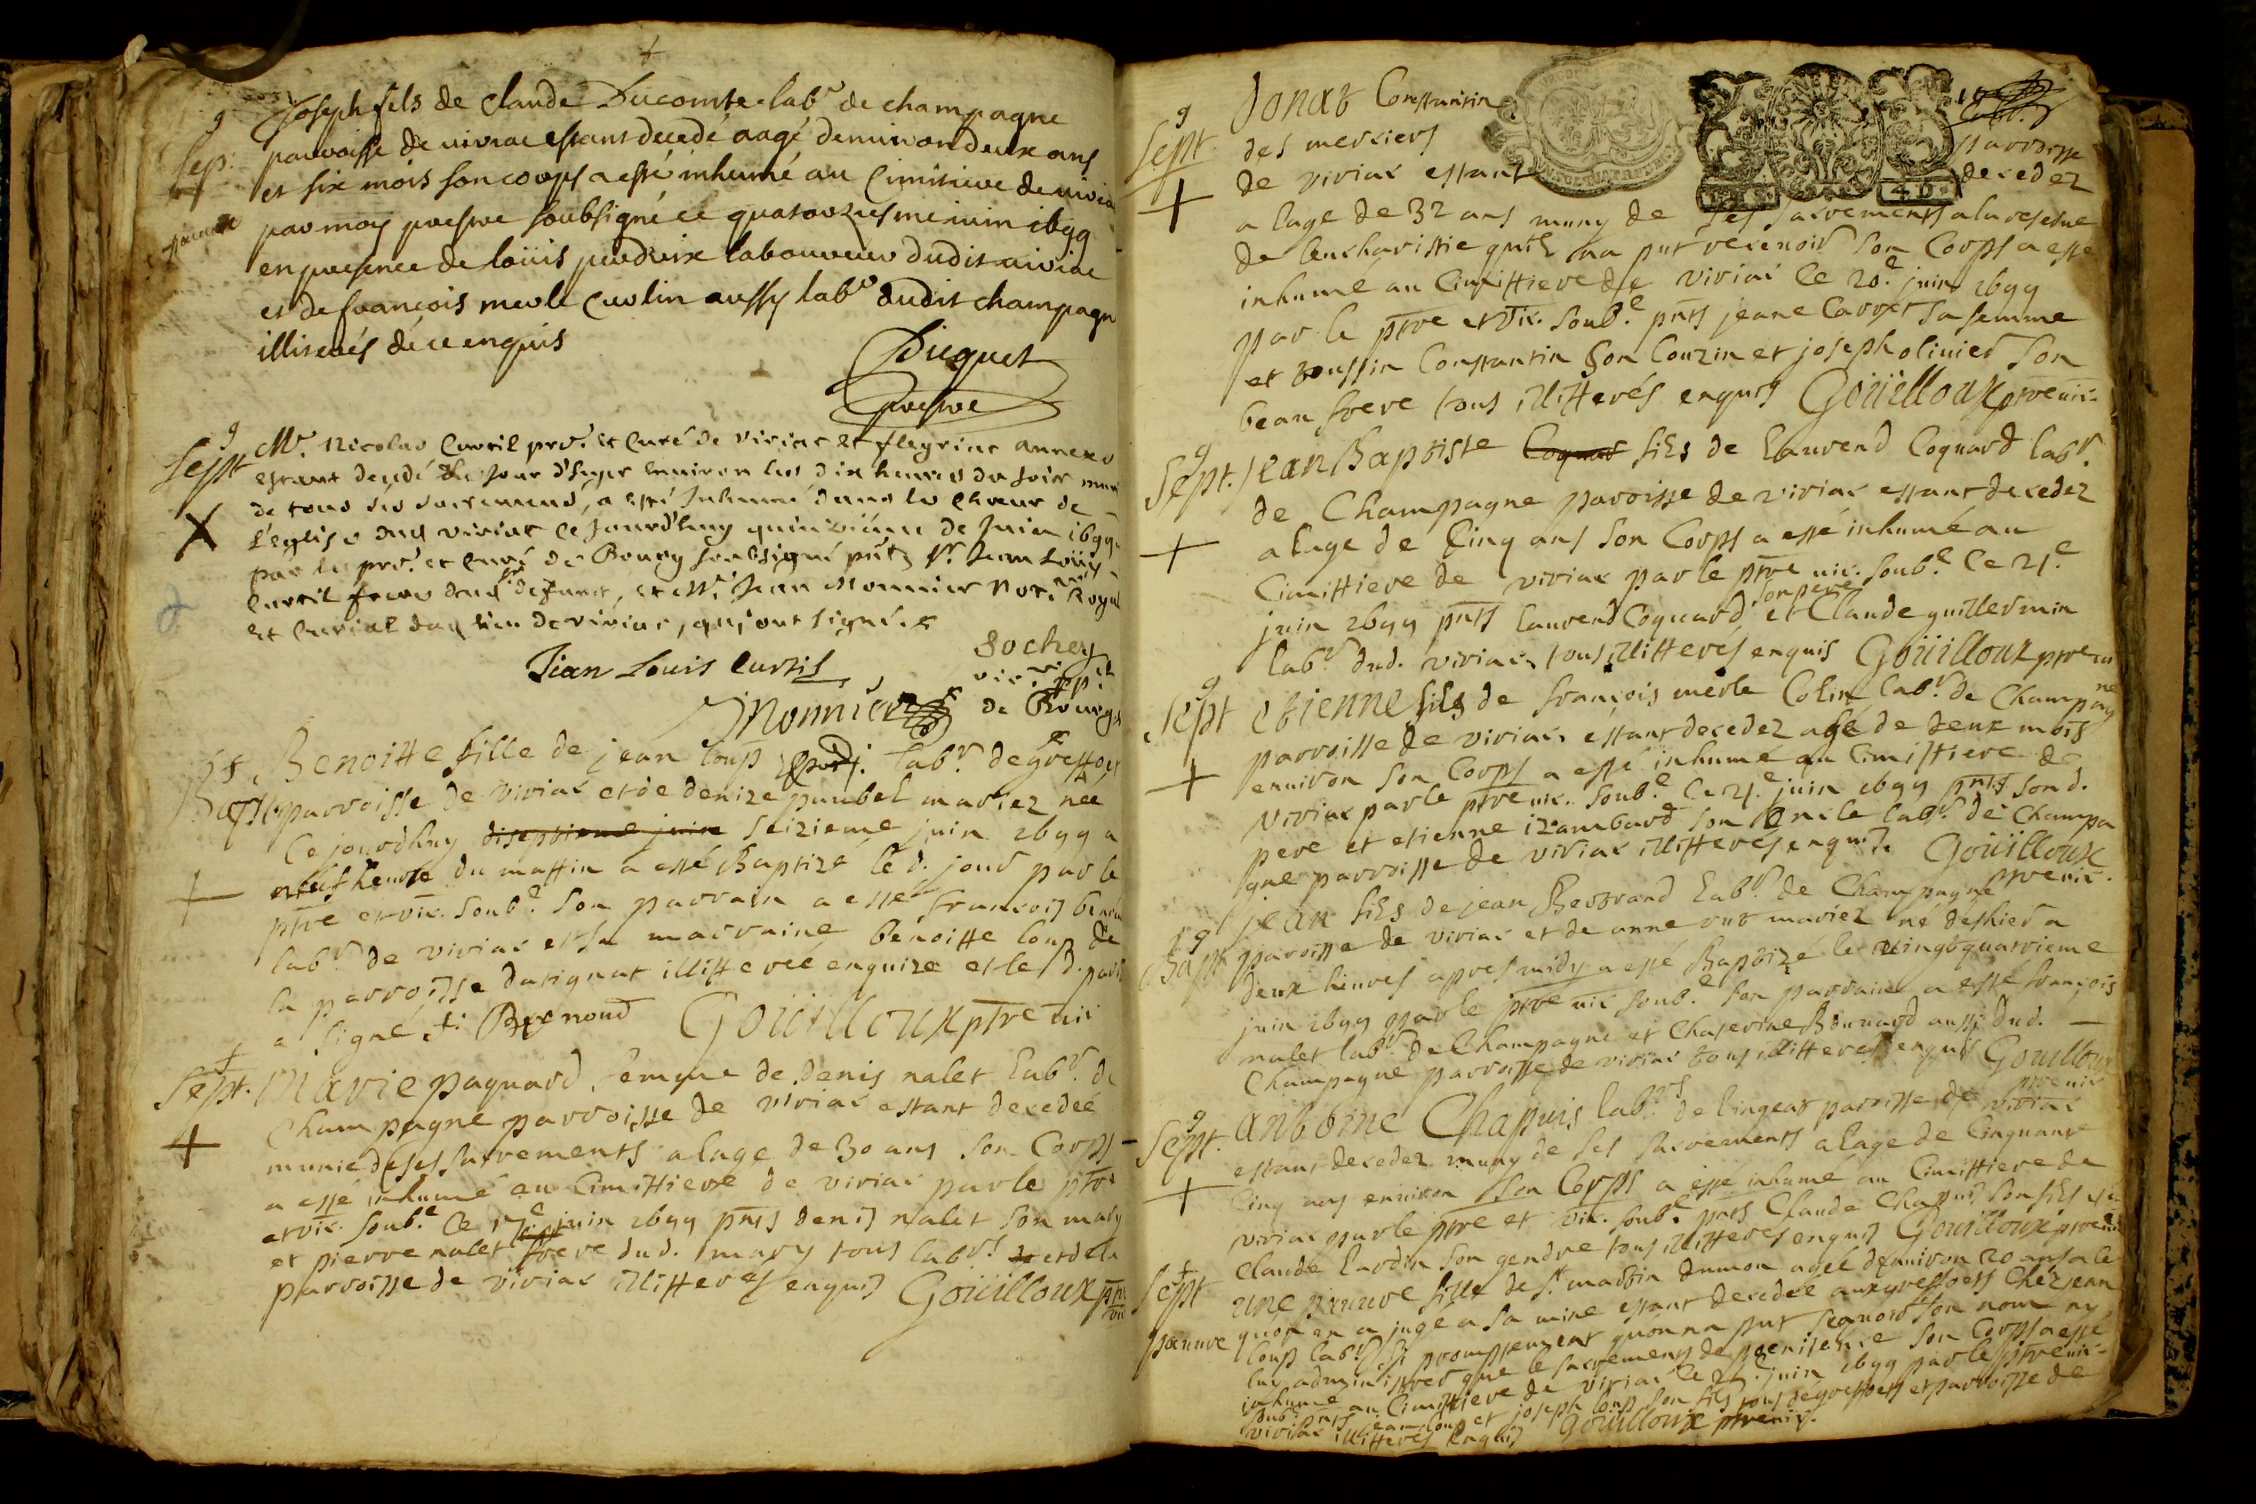 g
Sep.
pauvre
Joseph fils de Claude Ducomte labr de champagne
parroisse de viriac estant decedé aagé denviron deux ans
et six mois son corps a esté inhumé au Cimitiere de viria
par moy prestre soubsigné ce quatorziesme iuin 1699
en presence de loüis perdrix laboureur dudit viriac
et de françois merle Culin aussy labr dudit champagn
illiterés de ce enquis
Diquet
prestre
g
Sept
Mr. Nicolas Curtil pre. et Curé de viriat et flegrine annexe
estant decedé le jour d'hyer environ les dix heures du soir muni
de tous ses sacrements, a esté inhumé dans le Choeur de
l'eglise dud viriat ce jourd'huy quinziéme de juin 1699
par le pre. et Curé de Bourg soubsigné pñts Sr. Jean Loüis
Curtil frere dud Sr defunt, et Mr. Jean Monnier Notre Royal
et Curial dud lieu de viriac, qui ont signé
Jean Louis Curtil
Bochey
vic.
de Bourg
Monnier
Bapt
Benoitte fille de jean loup labr. de gressoer
parroisse de viriac et de denize pumbel mariez née
Ce jourdhuy diseptieme juin seizieme juin 1699 a
neuf heure du mattin a essé Baptizé le d. jour par le
ptre et vic. soub.e son parrain a essé françois
labr. de viriac et sa marraine benoitte loup de
la parroisse datignat illitterée enquize et le d. parr
a signé fi Brenond Goüilloux ptre vic
Sept.
Marie paquard femme de denis nalet labr. de
Champagne parroisse de viriac estant decedeé
munie de ses sacrements a lage de 30 ans son Corps
a essé inhumé au Cimittiere de viriac par le ptre
et vic. soub.e Ce 17e juin 1699 pnts denis nalet son mary
et pierre nalet frere dud. mary tous labrs et de la
parroisse de viriac illitterés enquis Goüilloux ptre
vic
g
Sept
Jonas Constantin
des merciers parroisse
de viriac estant decedez
a lage de 32 ans muny de ses sacrements a la reserve
de leucharistie quil na put recevoir son Corps a esse
inhumé au Cimittiere de viriac Ce 20.e juin 1699
par le ptre et vic. soub.e pnts jeane Carret sa femme
et toussin Constantin son Couzin et joseph olinier son
beau frere tous illitterés enquis Goüilloux ptre vic.
g
Sept.
jean Baptiste Coquar fils de laurend Coquard labr.
de Champagne paroisse de viriac estant decedez
a lage de Cinq ans son Corps a essé inhumé au
Cimittiere de viriac par le ptre vic. soub.e Ce 21.e
juin 1699 pnts laurend Coquard son pere et Claude guillermin
labr. dud. viriac tous illitterés enquis Goüilloux ptre vic
g
Sept
etienne fils de françois merle Colin labr. de Champagne
parroisse de viriac estant decedez agé de deux mois
environ son Corps a essé inhumé au Cimittiere de
viriac par le ptre vic. soub.e Ce 21.e juin 1699 pnts son d.
pere et etienne izambard son oncle labr. de Champa
gne parroisse de viriac illitterés enquis Goüilloux
ptre vic.
g
Bapt
jean fils de jean Bertrand labr. de Champagne
parroisse de viriac et de anne rus mariez né deshier a
deux heures apres midy a essé Baptizé le vingtquatrieme
juin 1699 par le ptre vic soub.e son parrain a esse françois
nalet labr. de Champagne et Chaterine Brunard aussi dud.
Champagne parroisse de viriac tous illitterés enquis Goüilloux
ptre vic
g
Sept.
antoine Chapuis labr. de lingeat paroisse de viriac
estant decedez muny de ses sacrements a lage de Cinquante
Cinq ans environ son Corps a essé inhumé au Cimittiere de
viriac par le ptre et vic. soub.e pnts Claude Chapuis son fils et
Claude lardin son gendre tous illitterés enquis Goüilloux ptre vic
Sept
pauvre
une pauvre fille de st. martin dumon ageé denviron 20 ans a ce
quon en a jugé a sa mine estant decedeé aux gressoers Chez jean
loup labr. si promptement quon na put sçavoir son nom ny
luy administrer que le sacrement de penitence son Corps a essé
inhumé au Cimittiere de viriac le juin 1699 par le ptre vic.
soub.e pnts jean loup et joseph loup son fils tous de gressoers et parroisse de
viriac illitterés enquis Goüilloux ptre vic.